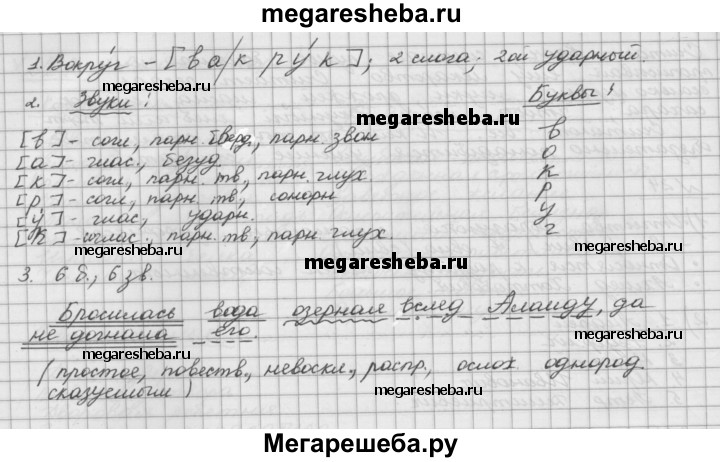 megaresheba.ru
1. Вокру́г - [ в а / к р у́ к ]; 2 слога; 2ой ударный.
megaresheba.ru
2. Звуки: Буквы:
megaresheba.ru
[в] - согл, парн. тверд, парн. звон в
[а] - глас., безуд. о
[к] - согл, парн. тв, парн. глух к
[р] - согл, парн. тв, сонорн р
[у́] - глас, ударн. у
[к] - соглас., парн. тв, парн. глух. г
megaresheba.ru megaresheba.ru
3. 6 б., 6 зв.
megaresheba.ru
Бросилась вода озерная вслед Алаиду, да
не догнала его.
megaresheba.ru megaresheba.ru
(простое, повеств., невоскл., распр., ослож. однород.
сказуемым)
megaresheba.ru
Мегарешеба.ру